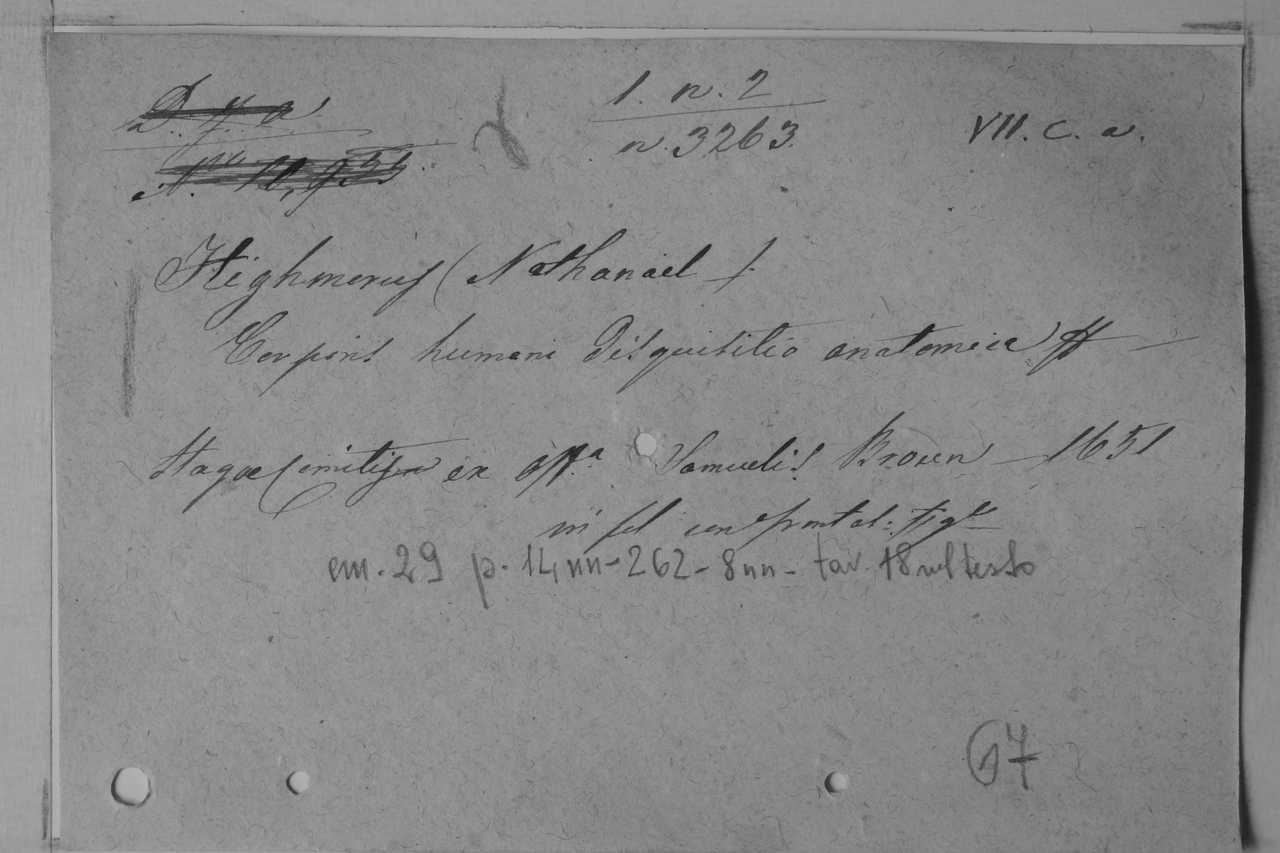 1. n. 2
n. 3263.
VII. c. a.
Highmorus (Nathanael).
Corporis humani disquisitio anatomica
Hagae Comitis ex off.a Samuelis Brown 1651
in fol con frontal: fig.e
cm. 29 p. 14nn-262-8nn- tav. 18 nel testo
67